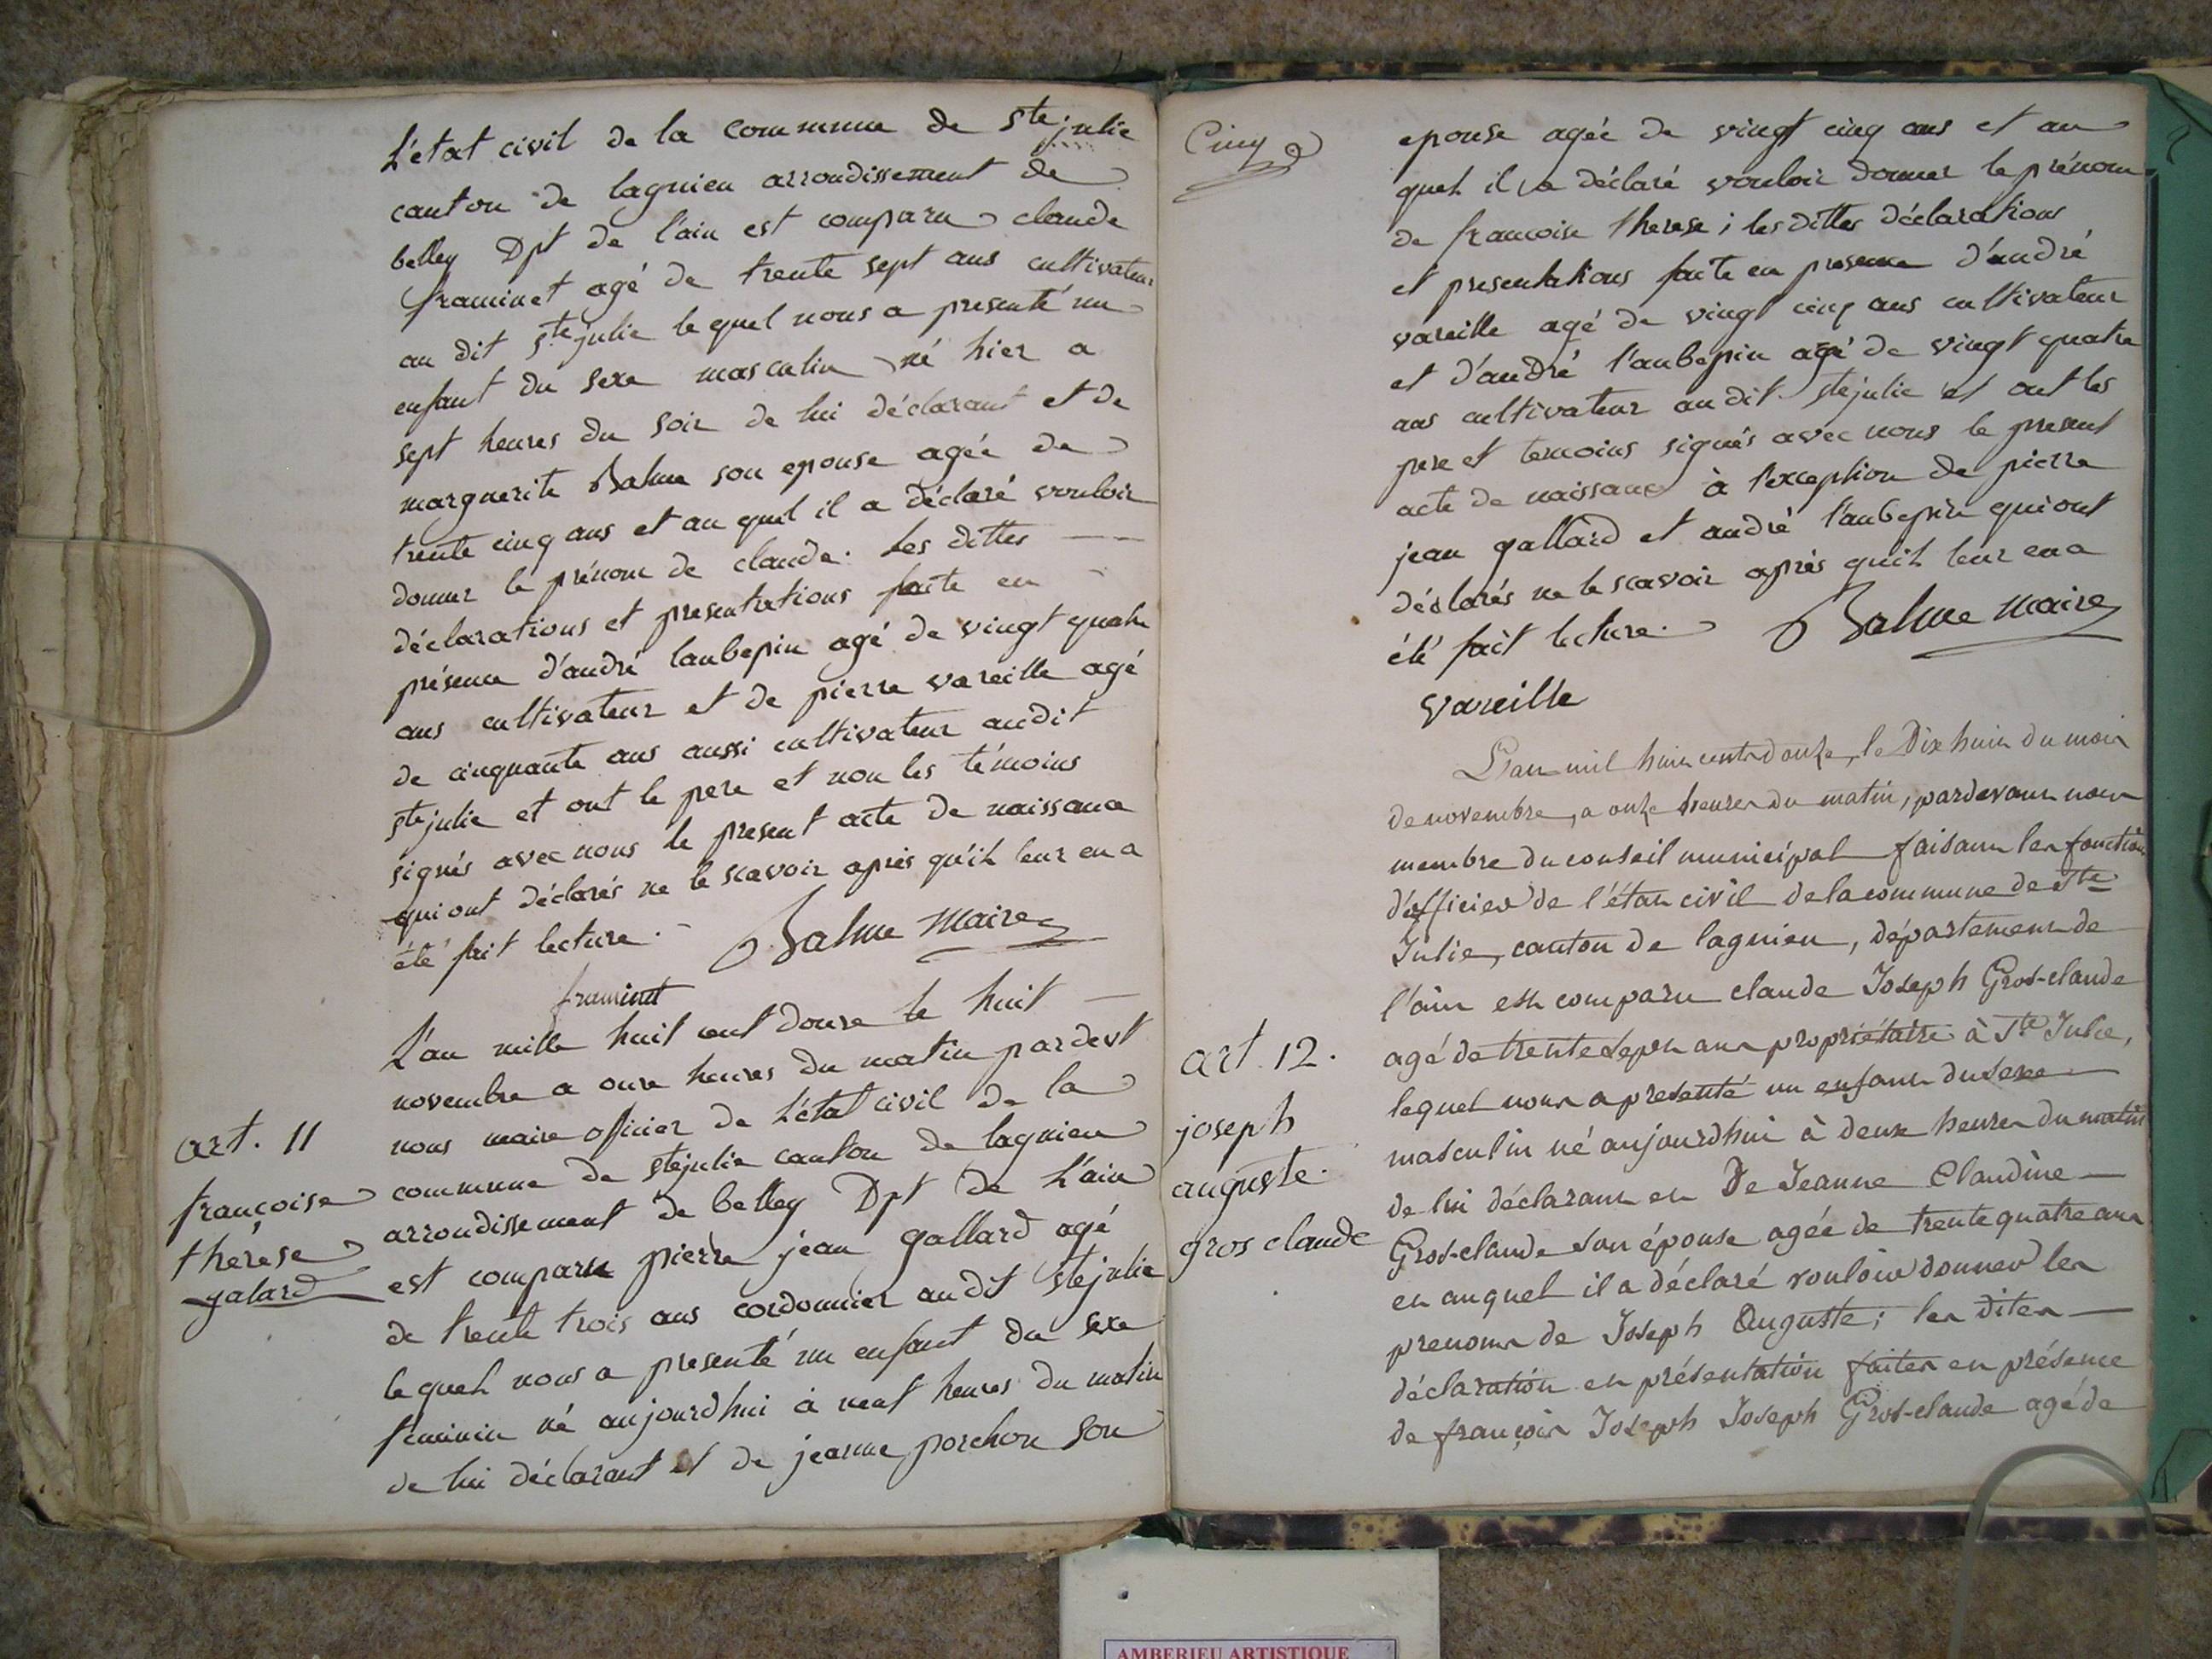 L'etat civil de la commune de Ste julie
canton de lagnieu arrondissement de
belley Dpt de l'ain est comparu claude
framinet agé de trente sept ans cultivateur
au dit Ste julie le quel nous a presenté un
enfant du sexe masculin né hier a
sept heures du soir de lui déclarant et de
marguerite Balme son epouse agée de
trente cinq ans et au quel il a déclaré vouloir
donner le prénom de claude. Les dittes
déclarations et presentations faite en
présence d'andré laubepin agé de vingt quatre
ans cultivateur et de pierre vareille agé
de cinquante ans aussi cultivateur audit
ste julie et ont le pere et non les témoins
signés avec nous le present acte de naissance
qui ont déclarés ne le scavoir après qu'il leur en a
été fait lecture. Balme maire
framinet
art. 11
françoise
thérèse
galard
L'an mille huit cent douze le huit
novembre a onze heures du matin pardevt
nous maire officier de L'état civil de la
commune de ste julie canton de lagnieu
arrondissement de belley Dpt de L'ain
est comparu pierre jean gallard agé
de trente trois ans cordonnier au dit ste julie
le quel nous a presenté un enfant du sexe
feminin né aujourdhui à neuf heures du matin
de lui déclarant et de jeanne porchon son
Cinq
epouse agée de vingt cinq ans et au
quel il a déclaré vouloir donner le prénom
de francoise therese ; les dittes déclarations
et presentations faite en presence d'andré
vareille agé de vingt cinq ans cultivateur
et d'andré l'aubepin agé de vingt quatre
ans cultivateur au dit ste julie et ont les
pere et temoins signés avec nous le present
acte de naissance à l'exception de pierre
jean gallard et andré l'aubepin qui ont
déclarés ne le scavoir après qu'il leur en a
été fait lecture. Balme maire
vareille
art. 12.
joseph
auguste.
gros claude
L'an mil huit cent douze, le Dix huit du mois
de novembre, a onze heures du matin, pardevant nous
membre du conseil municipal faisant les fonctions
d'officier de l'état civil de la commune de Ste
Julie, canton de lagnieu, département de
l'ain est comparu claude Joseph Gros-claude
agé de trente sept ans propriétaire à Ste Julie,
lequel nous a presenté un enfant du sexe
masculin né aujourdhui à deux heures du matin
de lui déclarant et De Jeanne Claudine
Gros-claude son épouse agée de trente quatre ans
et auquel il a déclaré vouloir donner les
prenoms de Joseph Auguste ; les dites
déclaration et présentation faites en présence
de françois Joseph Joseph Gros-claude agé de
AMBERIEU ARTISTIQUE